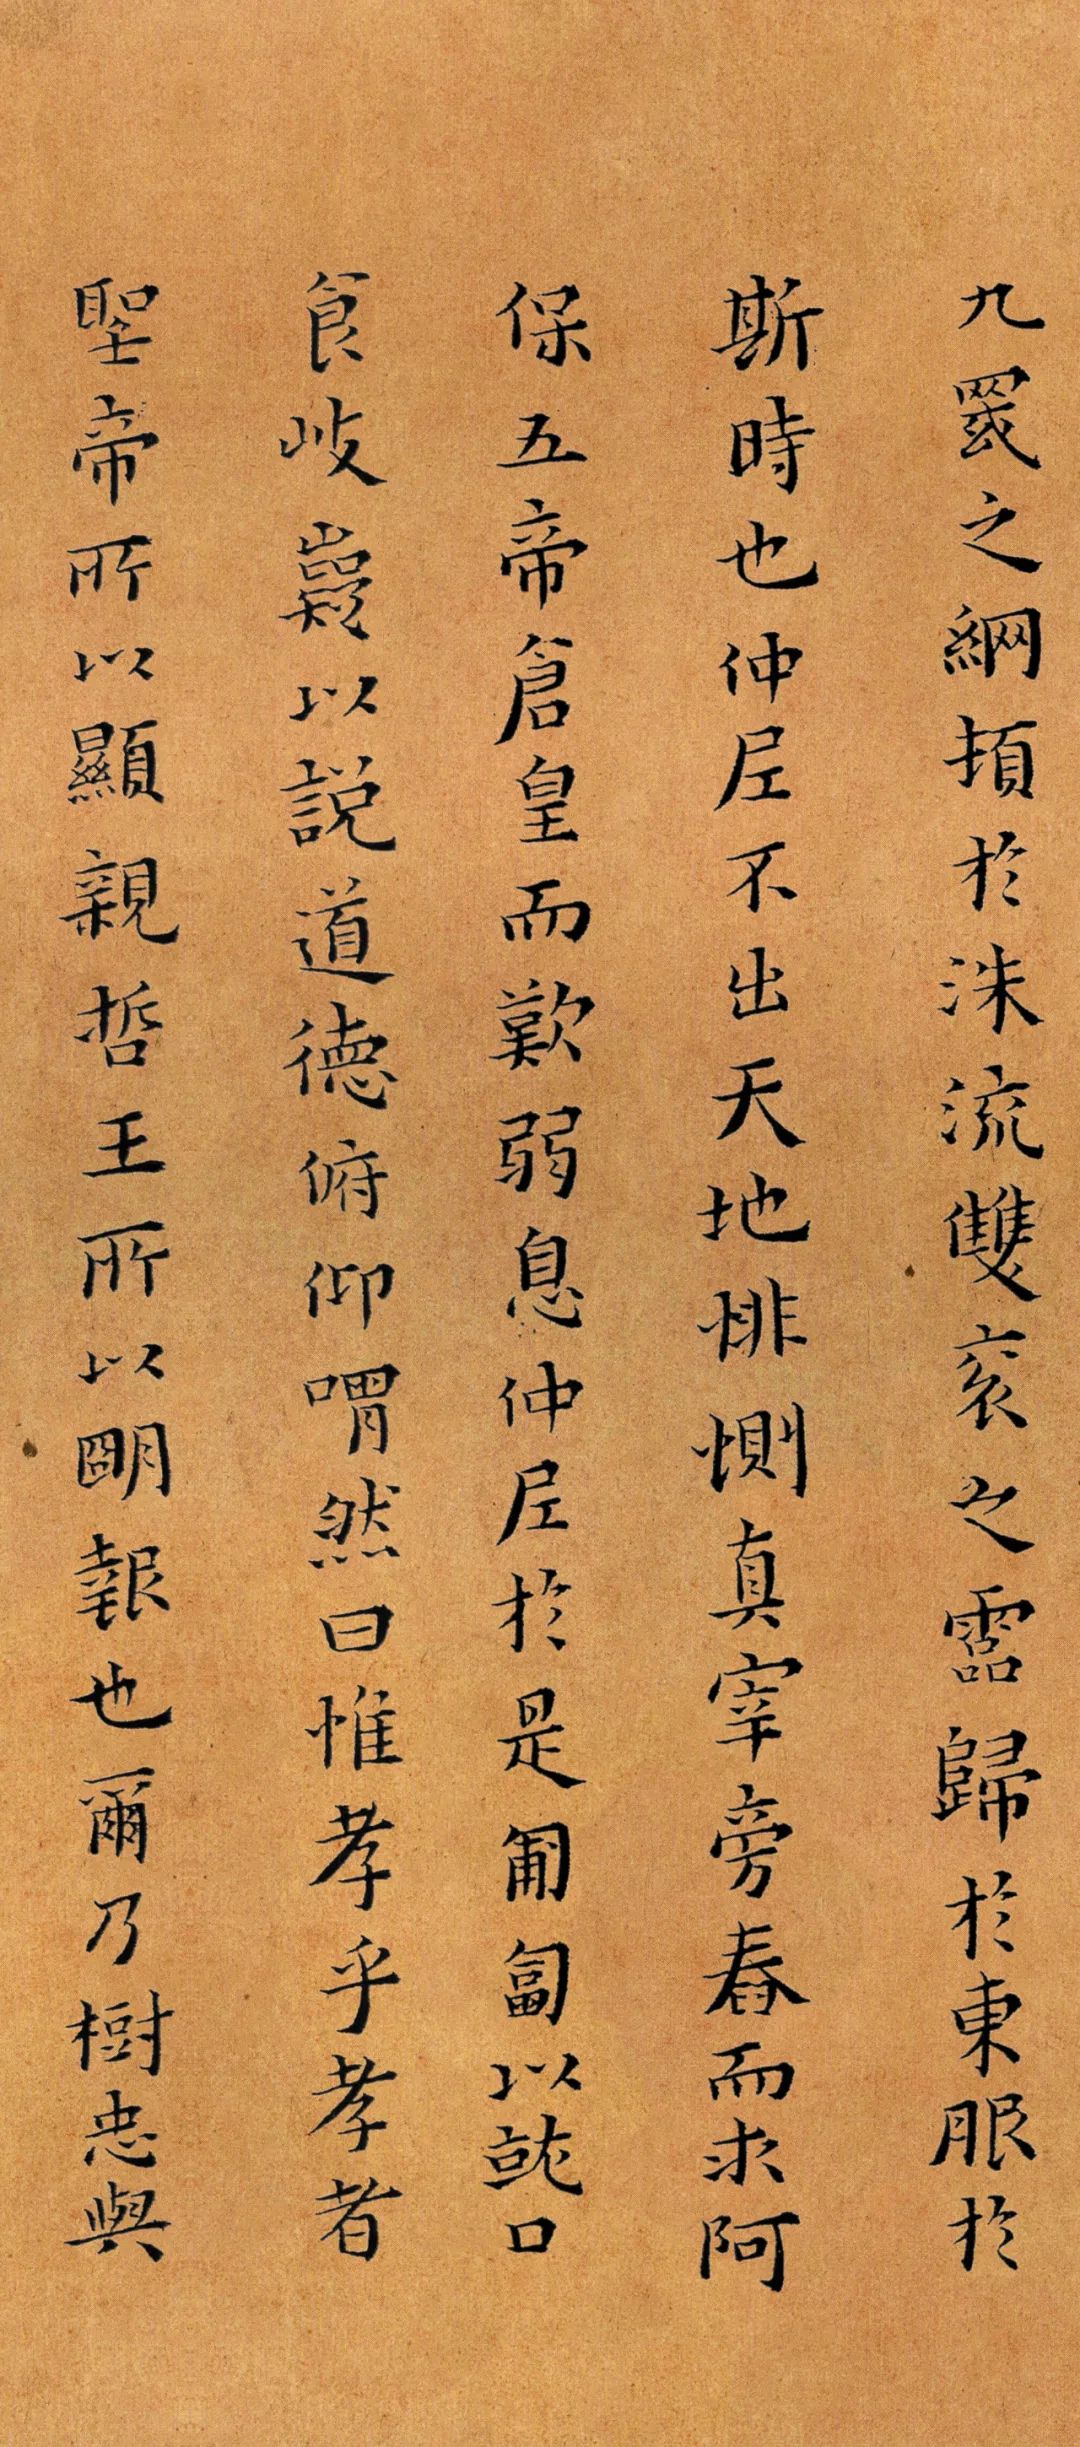 九罭之綱頓於洙流雙衮之靈歸於東服於
斯時也仲尼不出天地悱惻真宰旁舂而求阿
保五帝倉皇而歎弱息仲尼於是匍匐以就口
食岐嶷以説道德俯仰喟然曰惟孝乎孝者
聖帝所以顯親哲王所以明報也爾乃樹忠與